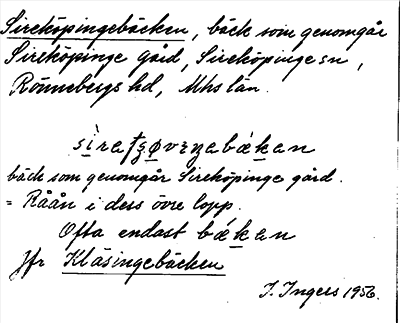 Sireköpingebäcken, bäck som genomgår
Sireköpinge gård, Sireköpinge sn,
Rönnebergs hd, Mhs län.
bäck som genomgår Sireköpinge gård.
= Råån i dess övre lopp.
Ofta endast bǽkan
Jfr Kläsingebäcken
I. Ingers 1956.